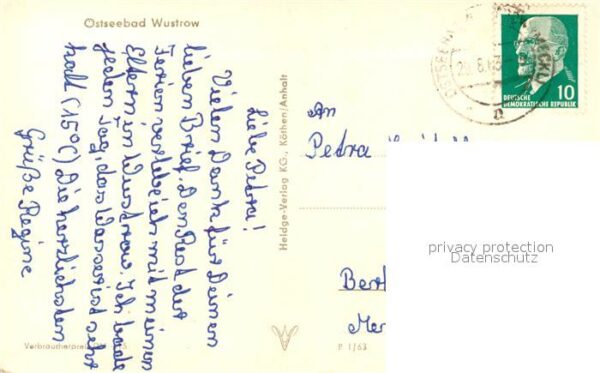 Ostseebad Wustrow
Liebe Petra!
Vielen Dank für Deinen
lieben Brief. Den Rest der
Ferien verlebe ich mit meinen
Eltern in Wustrow. Ich bade
jeden Tag, das Wasser ist sehr
kalt (15°C) Die herzlichsten
Grüße Regine
Verbraucherpreis
Heldge-Verlag KG., Köthen/Anhalt
P 1/63
An
Petra
Ber
Mer
DEUTSCHE
DEMOKRATISCHE REPUBLIK
10
privacy protection
Datenschutz